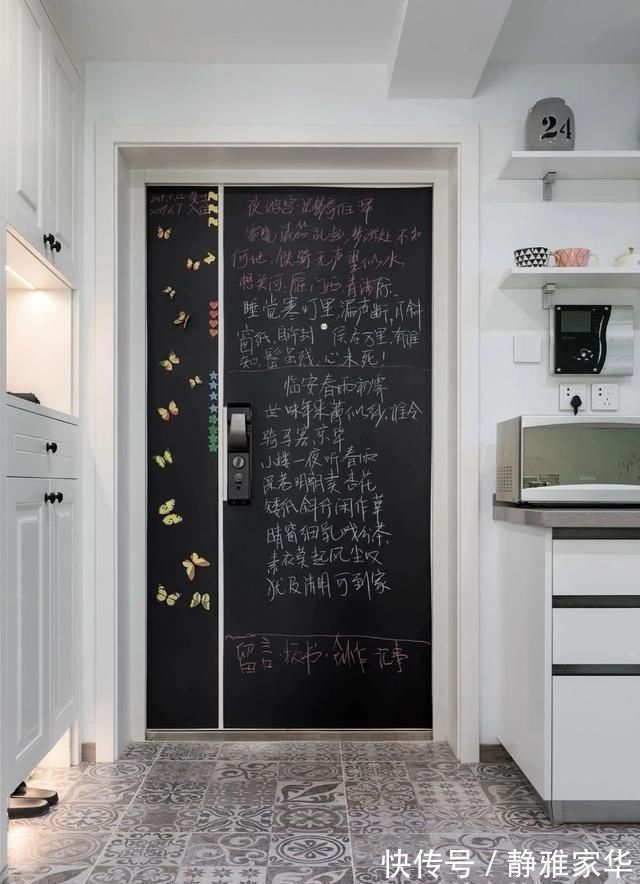 24
2017.6.7 入住
夜游宫·记梦寄伯浑
雪晓清笳乱起,梦游处不知
何地。铁骑无声望似水,
想关河,雁门西青海际。
睡觉寒灯里,漏声断,月斜
窗纸,自许封侯在万里,有谁
知,鬓虽残,心未死!
临安春雨初霁
世味年来薄似纱,谁令
骑马客京华
小楼一夜听春雨
深巷明朝卖杏花
矮纸斜行闲作草
晴窗细乳戏分茶
素衣莫起风尘叹
犹及清明可到家
留言·板书·创作·记事
快传号 / 静雅家华